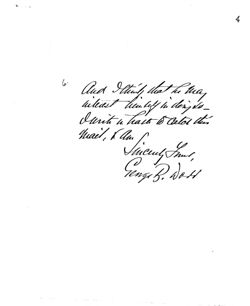 6
And I think, that he may
interest himself in doing so—
I write in haste to catch this
mail, & am
Sincerely Yours,
George B. Dodd
4